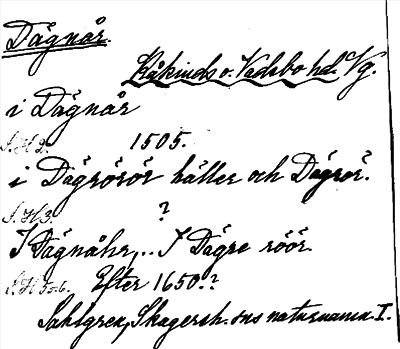 Dägnår.
Kåkinds o. Vadsbo hd. Vg.
i Dägnår
S. H 2. 1505.
i Dägrörör häller och Dägrör.
S. H 3. ?
I Dägnåhr,.. I Dägre röör.
S. H 5 o 6. Efter 1650.?
Sahlgren, Skagersh. ons naturnamn I.